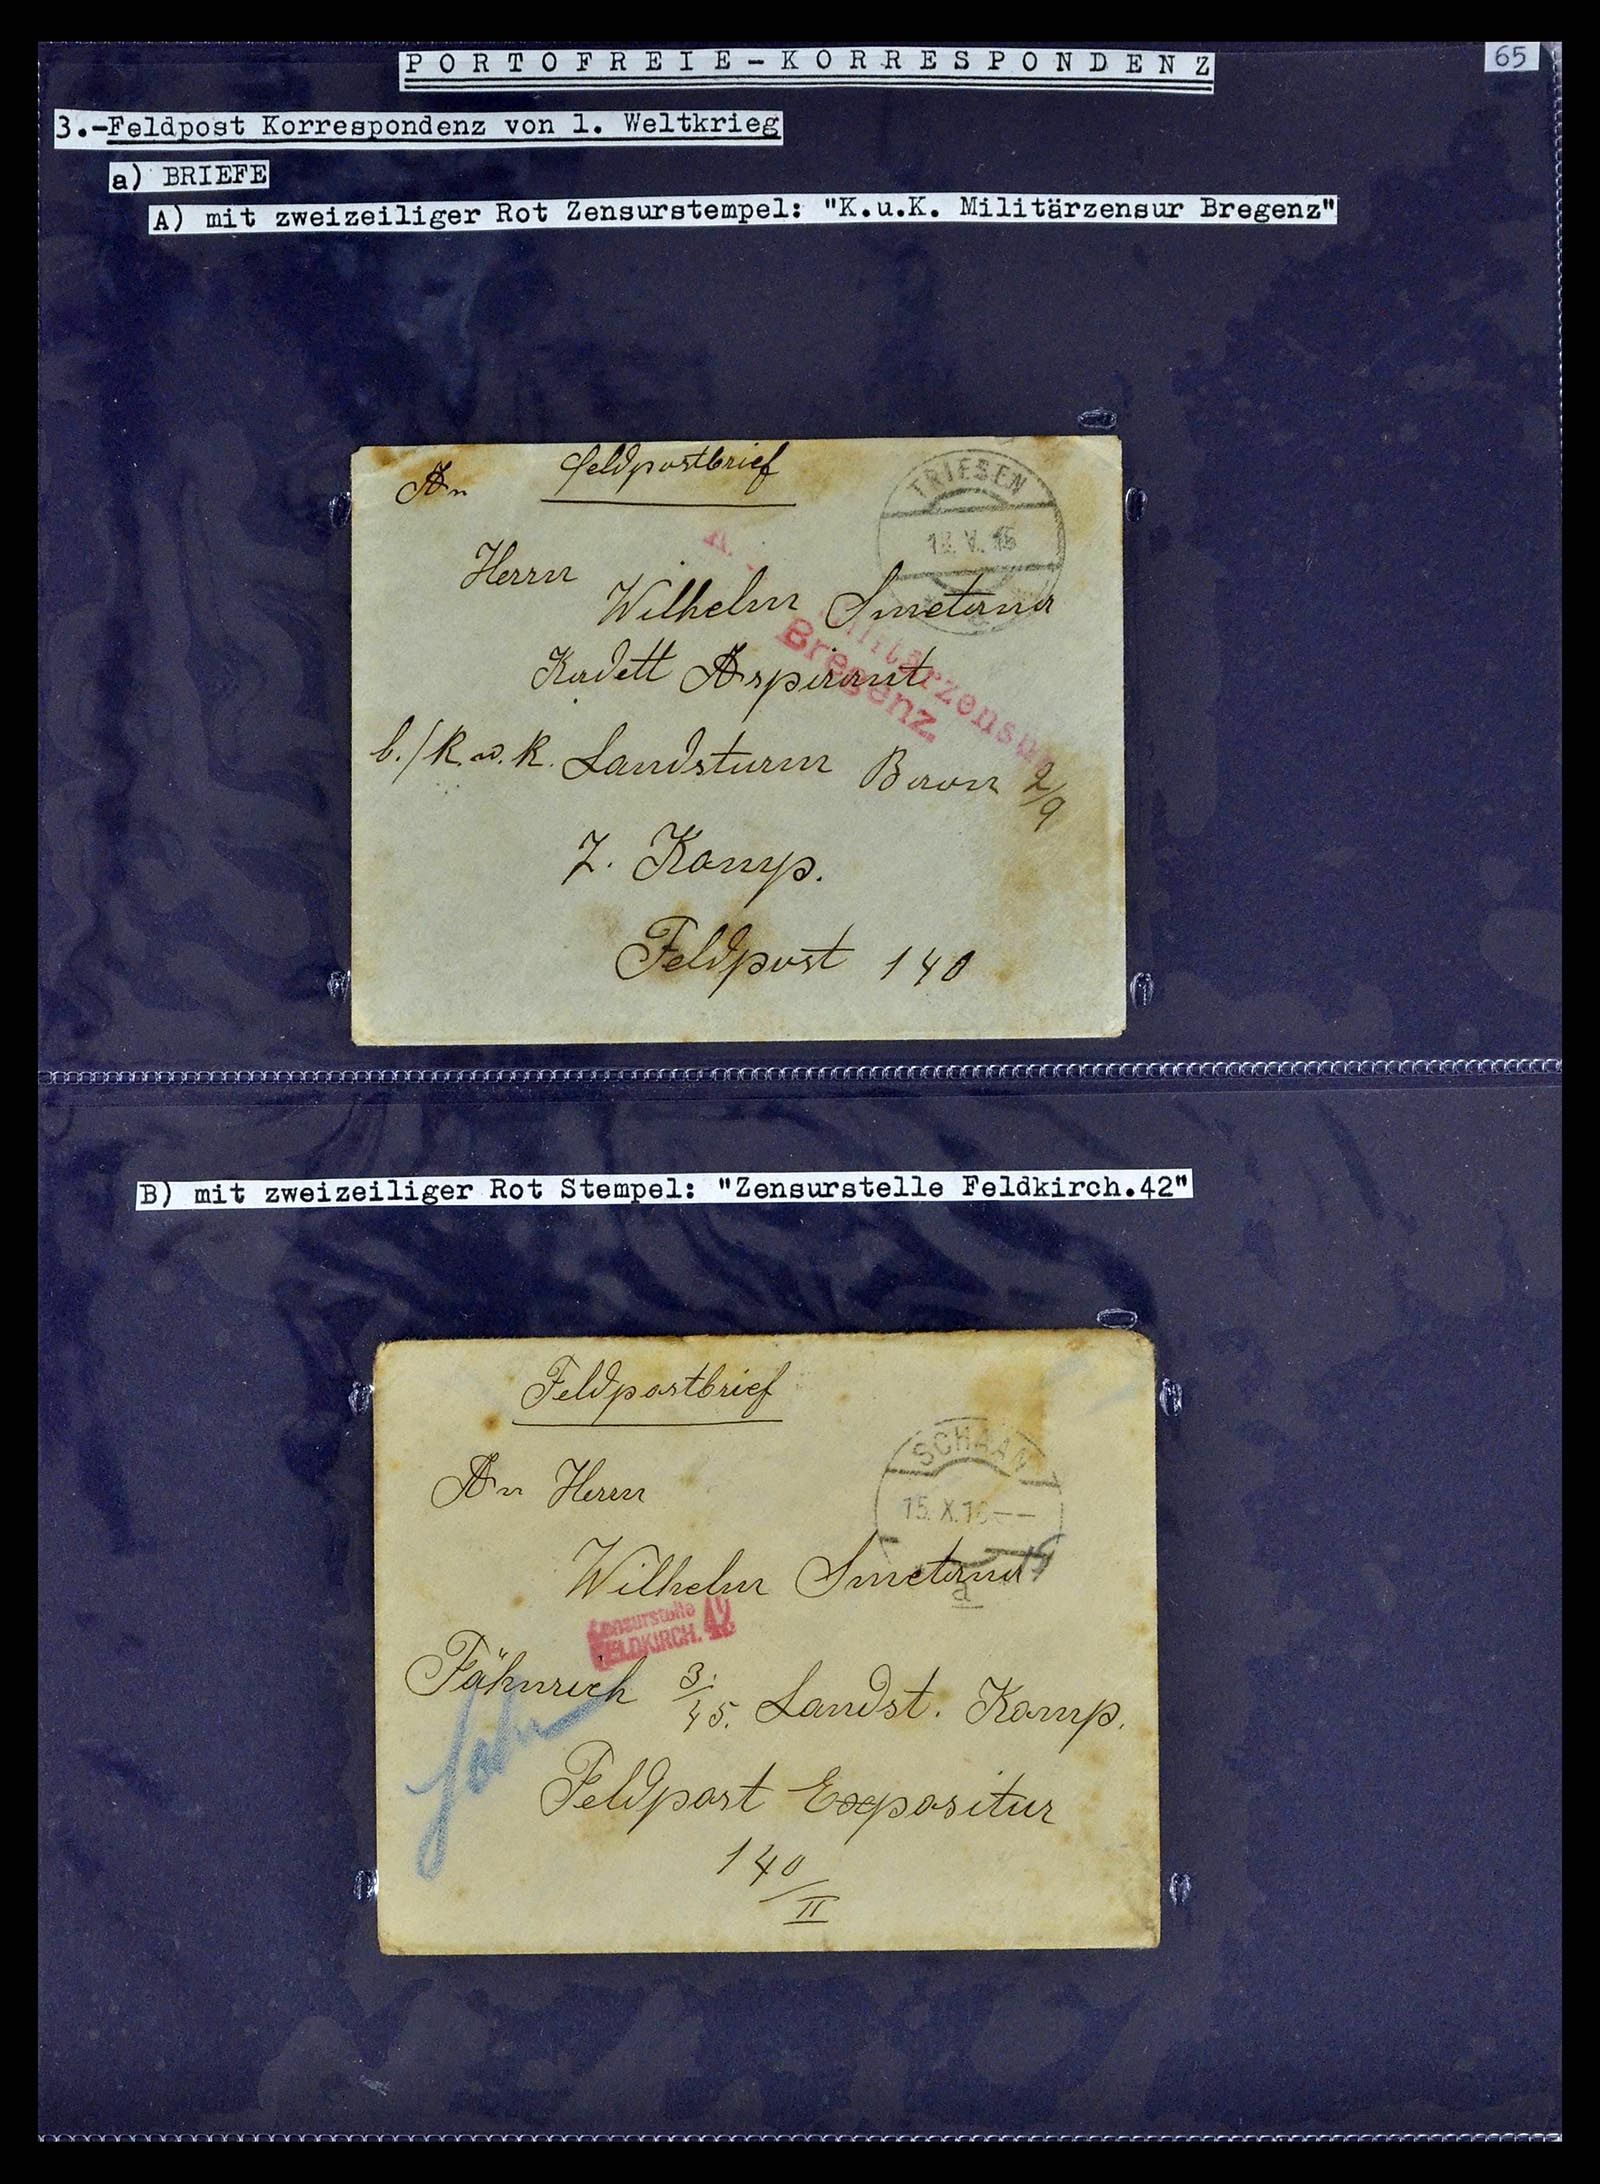 PORTOFREIE-KORRESPONDENZ
65
3.-Feldpost Korrespondenz von 1. Weltkrieg
a) BRIEFE
A) mit zweizeiliger Rot Zensurstempel: "K.u.K. Militärzensur Bregenz"
Feldpostbrief
An
TRIESEN
V. 15
Herrn
Wilhelm Smetana
K. Militärzensur
Bregenz.
Kadett Aspirant
b./k.u.k. Landsturm Baon 2/9
7. Komp.
Feldpost 140
B) mit zweizeiliger Rot Stempel: "Zensurstelle Feldkirch.42"
Feldpostbrief
SCHAAN
15. X. 16
a
An Herrn
Wilhelm Smetana
Zensurstelle
FELDKIRCH. 42
Fähnrich 3/45. Landst. Komp.
Feldpost Expositur
140/II